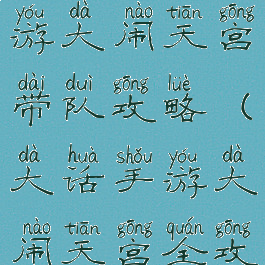 yóu dà nào tiān gōng
游大闹天宫
dài duì gōng lüè
带队攻略（
dà huà shǒu yóu dà
大话手游大
nào tiān gōng quán gōng
闹天宫全攻